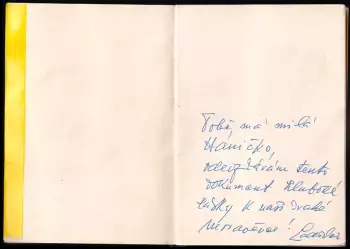 Tobě, má milá
Haničko,
odevzdávám tento
dokument hluboké
lásky k naší drahé